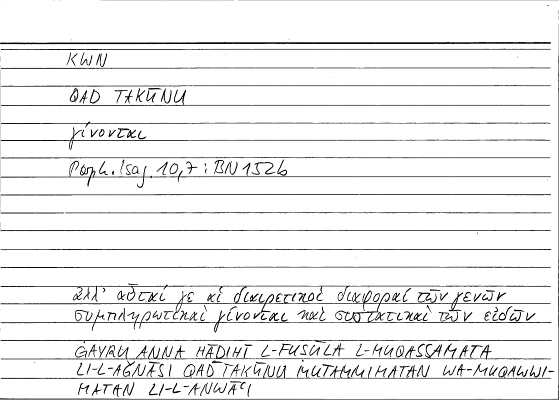 KWN
QAD TAKŪNU
γίνονται
Porph. Isag. 10,7 : BN 152b
ἀλλ' αὗταί γε αἱ διαιρετικαὶ διαφοραὶ τῶν γενῶν
συμπληρωτικαὶ γίνονται καὶ συστατικαὶ τῶν εἰδῶν
ĠAYRU ANNA HĀḎIHĪ L-FUṢŪLA L-MUQASSAMATA
LI-L-AǦNĀSI QAD TAKŪNU MUTAMMIMATAN WA-MUQAWWI-
MATAN LI-L-ANWĀʿI